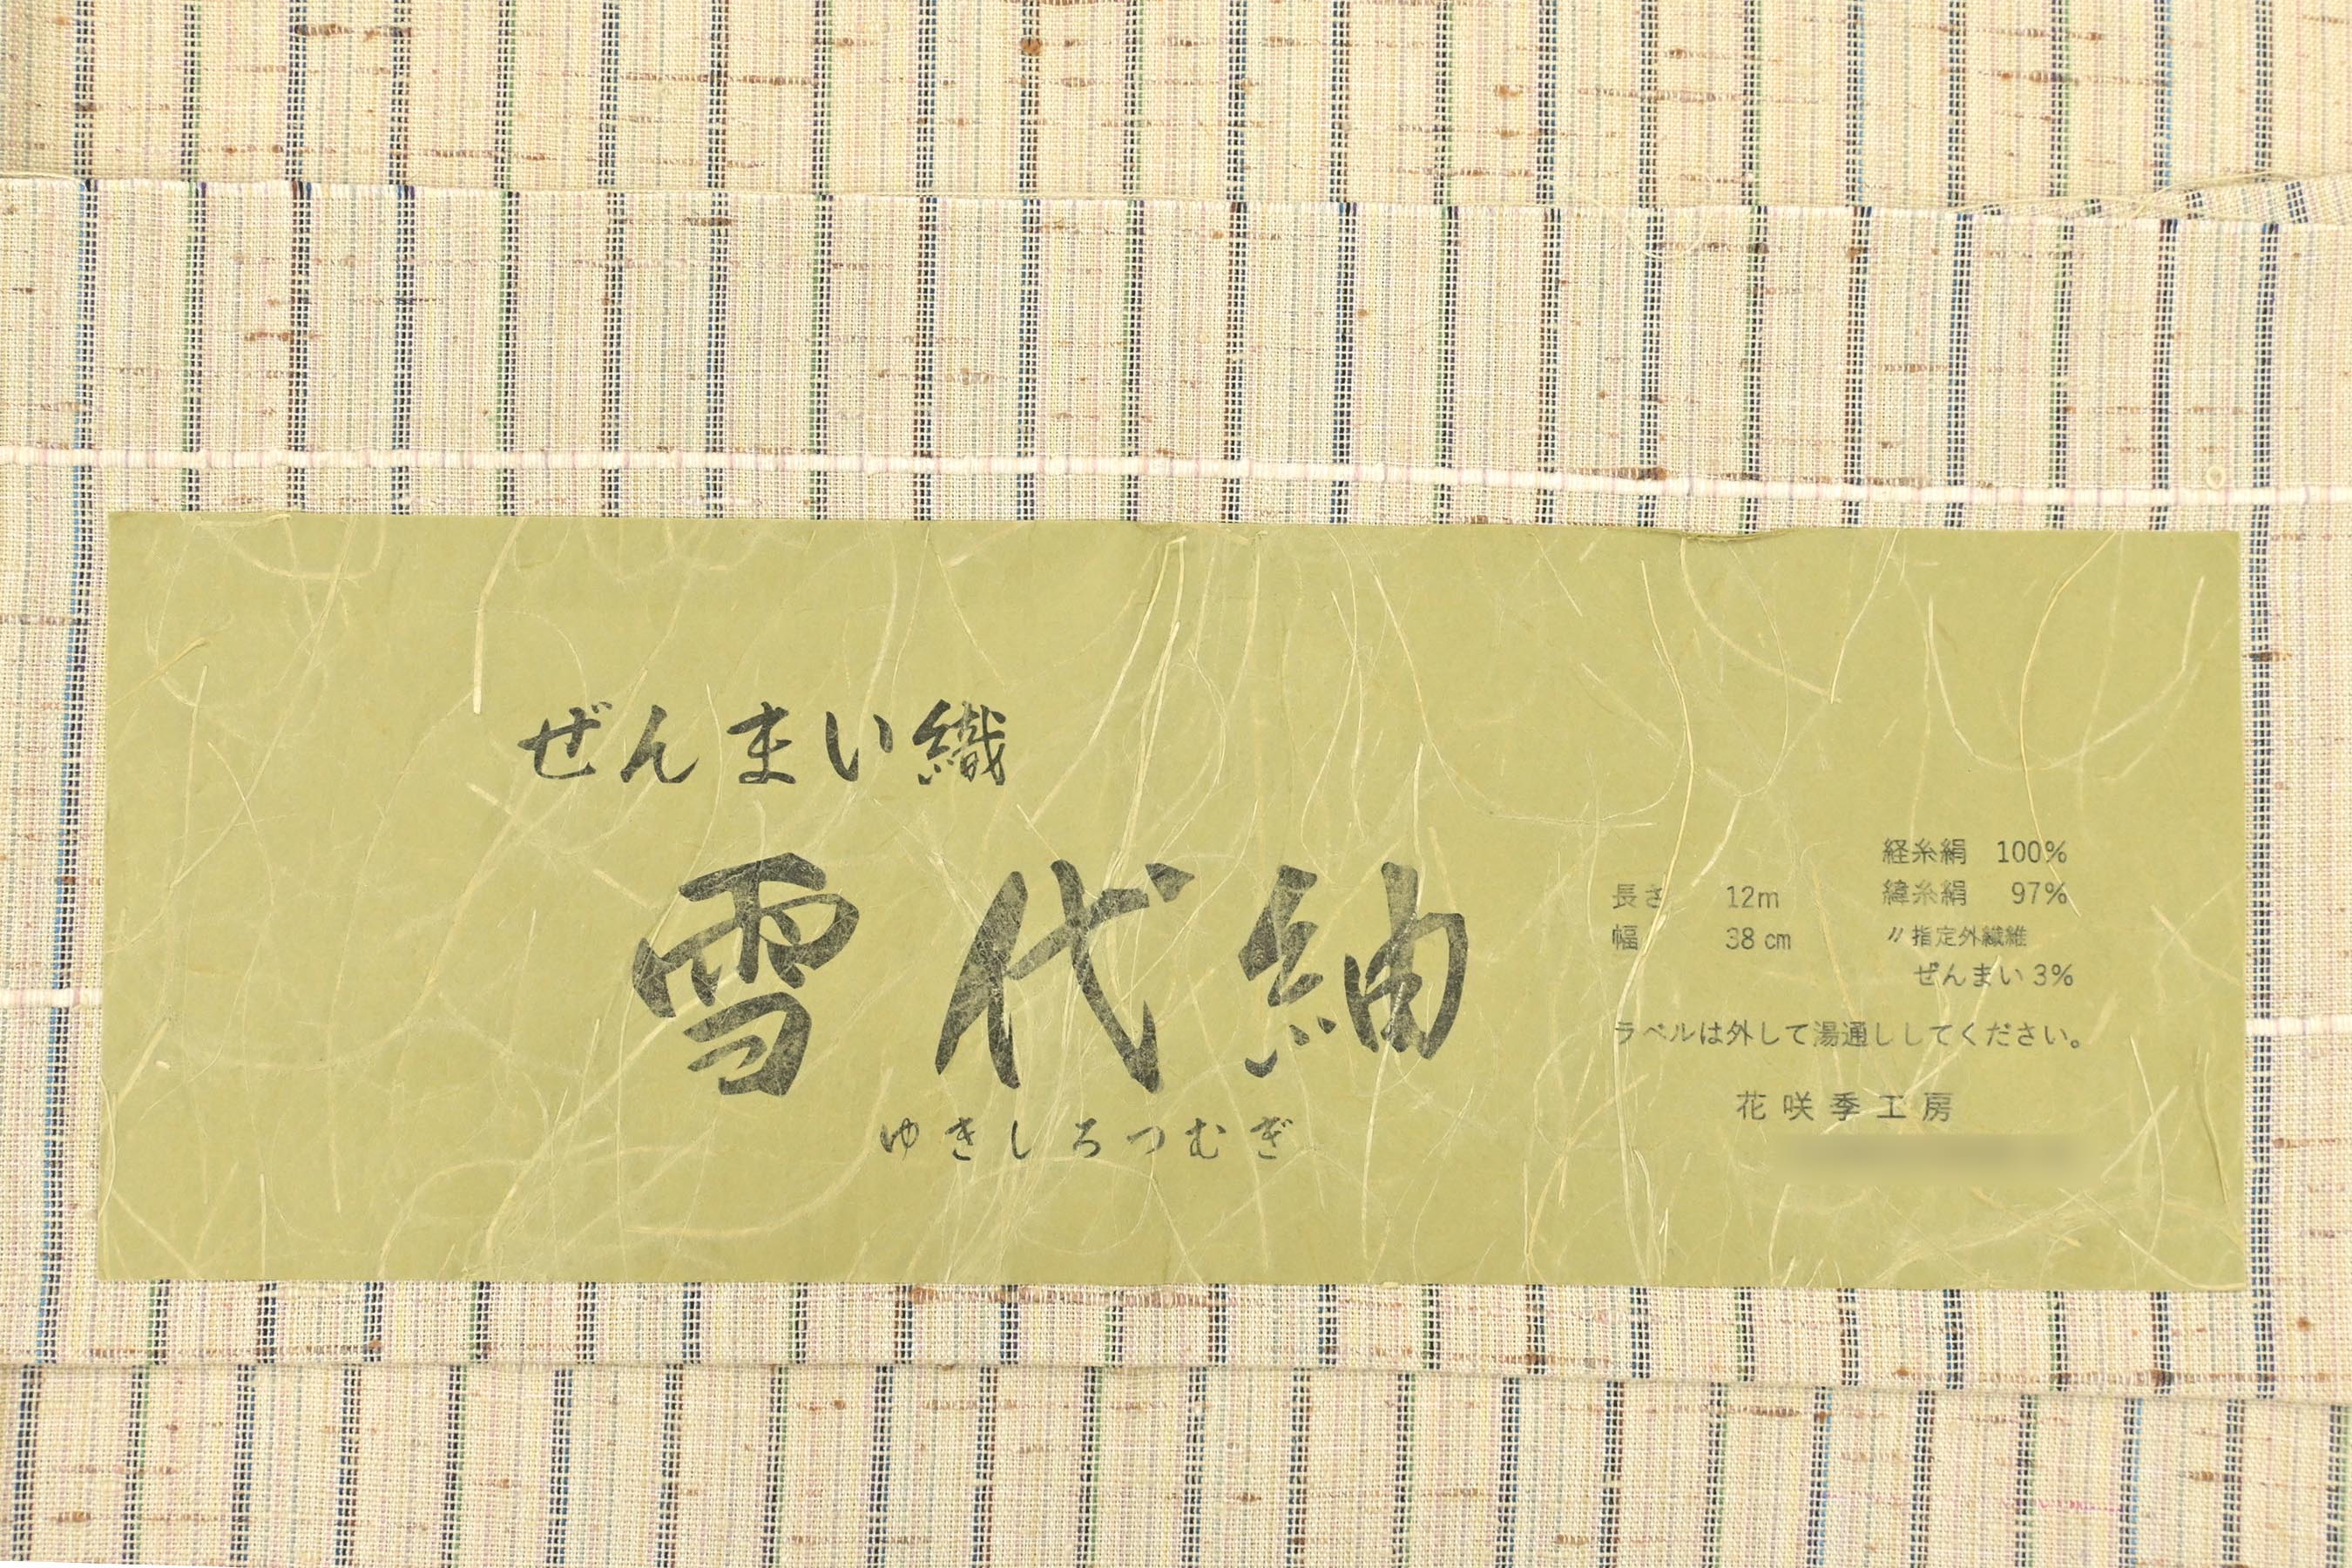 ぜんまい織
雪代紬
ゆきしろつむぎ
長さ 12m
幅 38cm
経糸絹 100%
緯糸絹 97%
〃指定外繊維
ぜんまい3%
ラベルは外して湯通ししてください。
花咲季工房